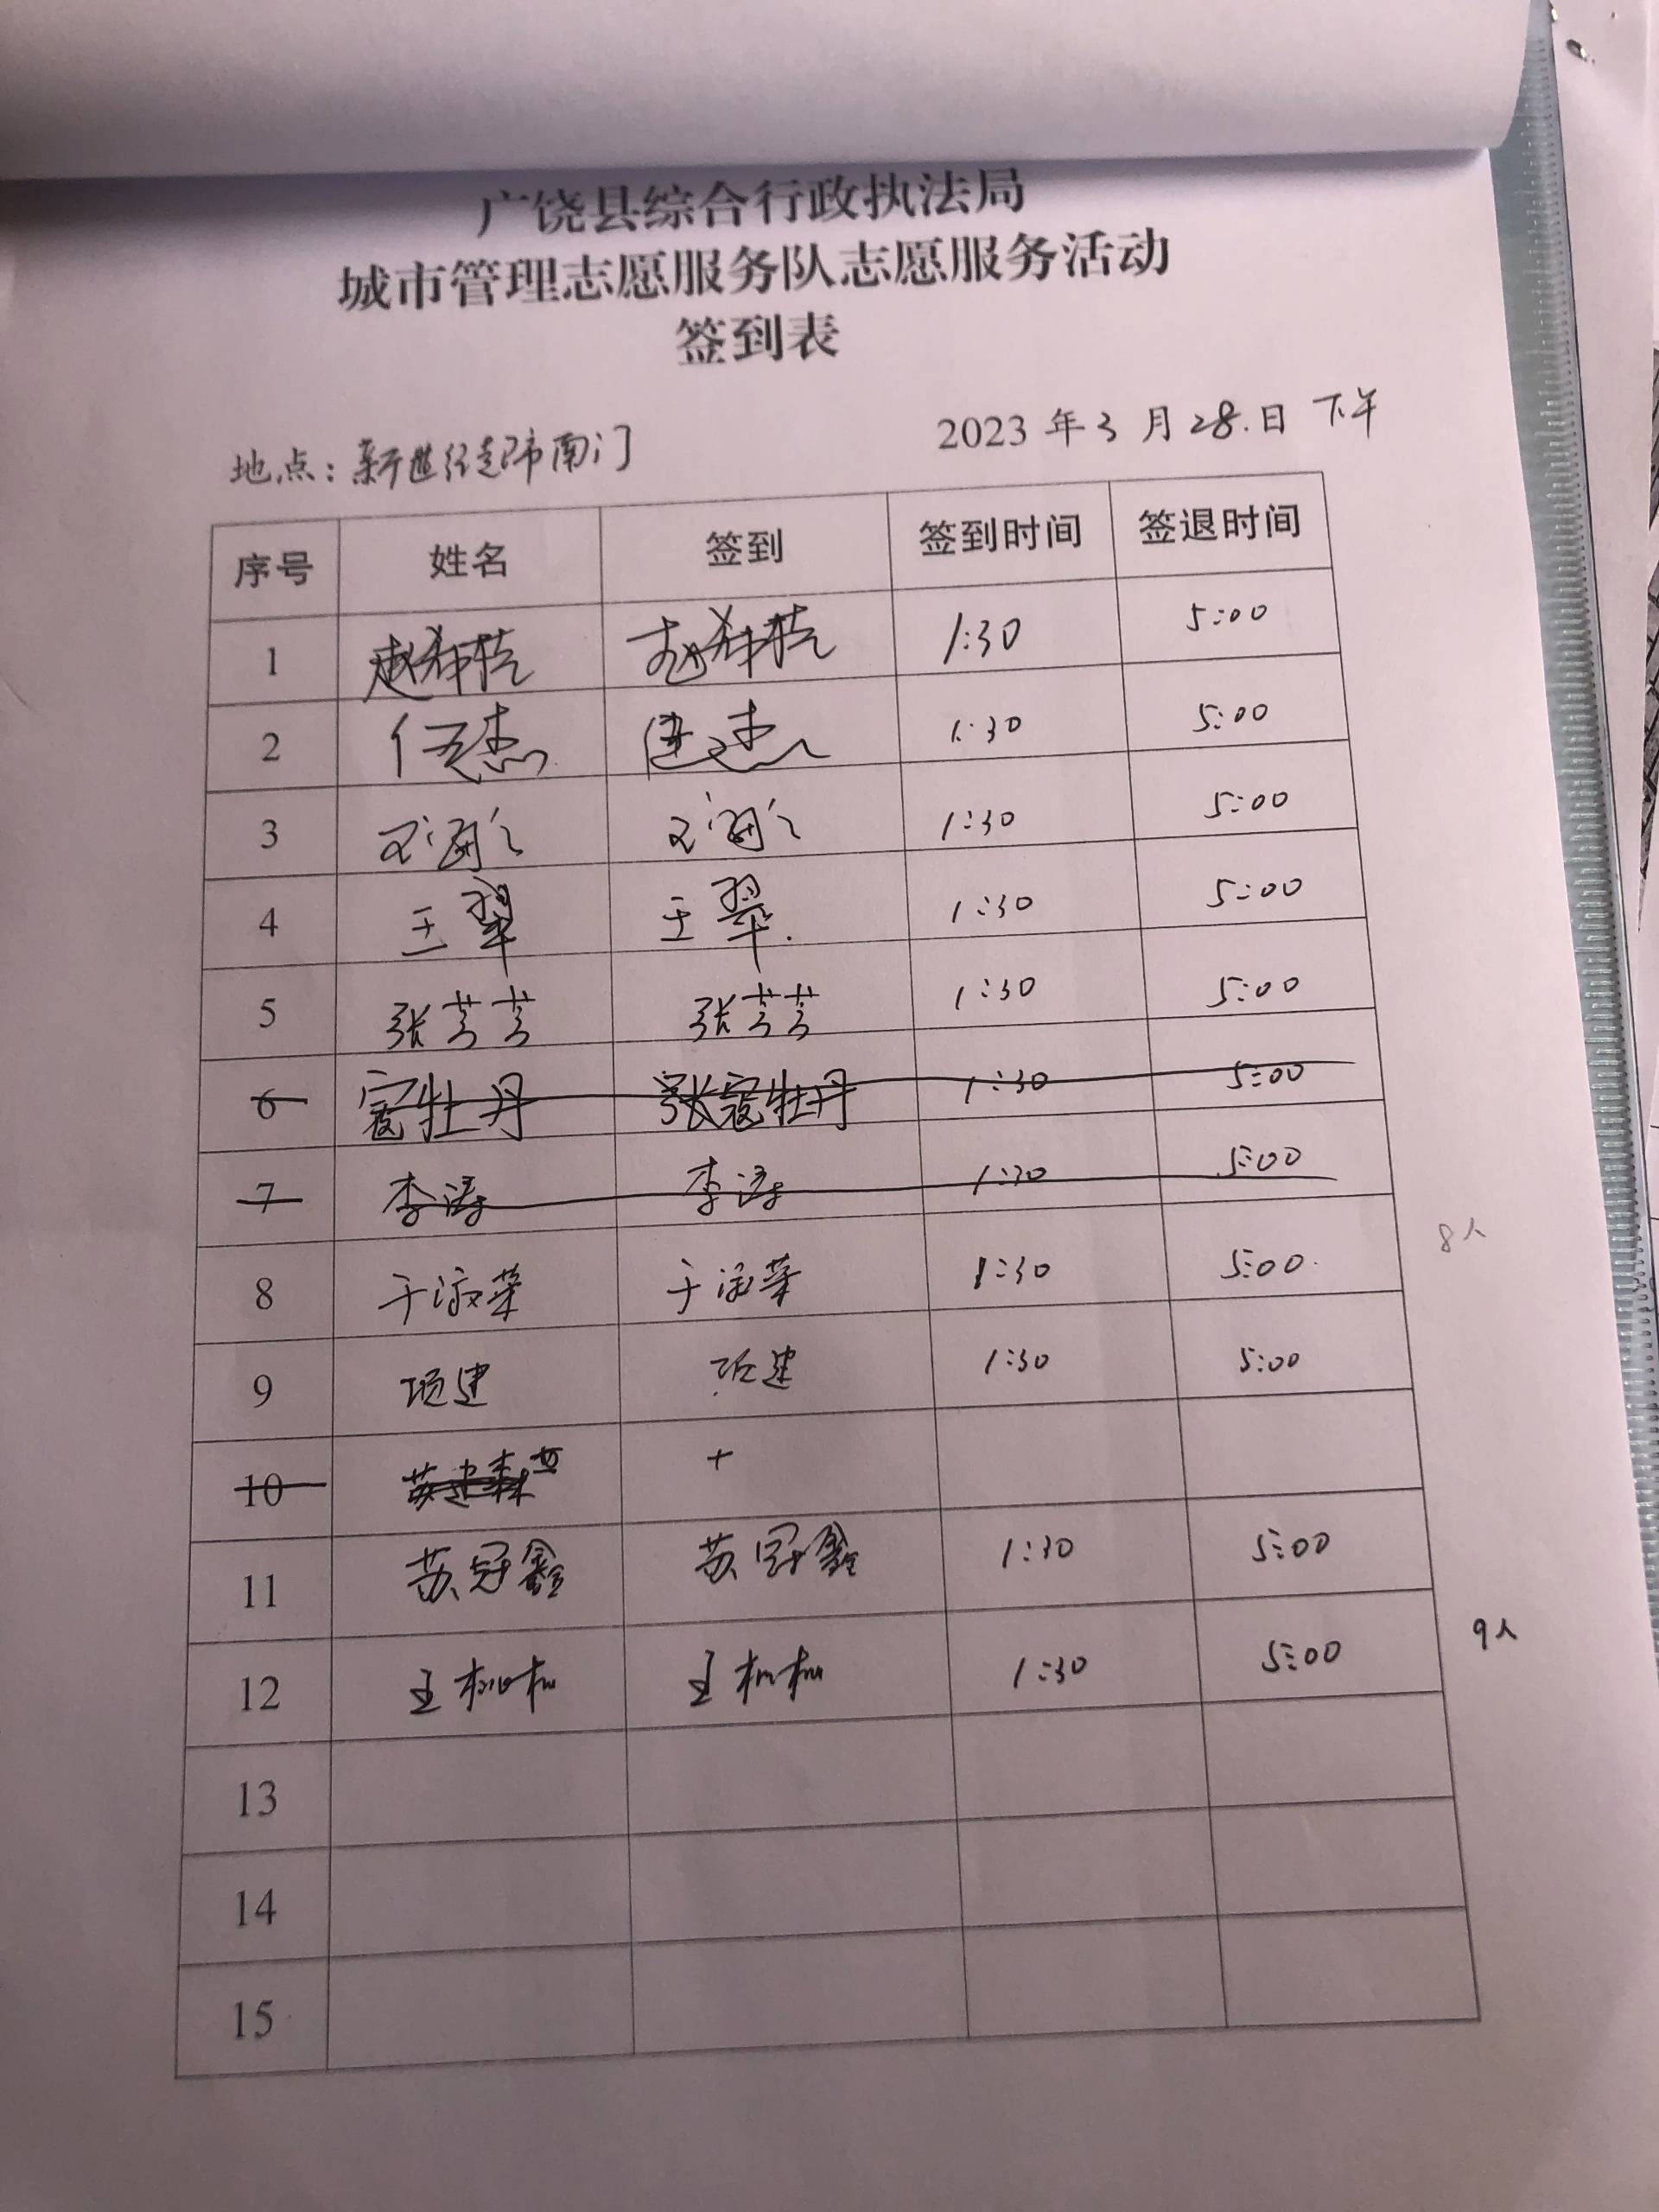 广饶县综合行政执法局
城市管理志愿服务队志愿服务活动
签到表
地点：新世纪超市南门 2023年3月28.日 下午
序号 姓名 签到 签到时间 签退时间
1 赵 赵 1:30 5:00
2 伍杰 伍杰 1:30 5:00
3 1:30 5:00
4 王翠 王翠. 1:30 5:00
5 张芳芳 张芳芳 1:30 5:00
6 寇牡丹 张寇牡丹 1:30 5:00
7 李涛 李涛 1:30 5:00
8人
8 于淑荣 于淑荣 1:30 5:00
9 项建 项建 1:30 5:00
10 +
11 苏冠鑫 苏冠鑫 1:30 5:00
9人
12 王 王 1:30 5:00
13
14
15